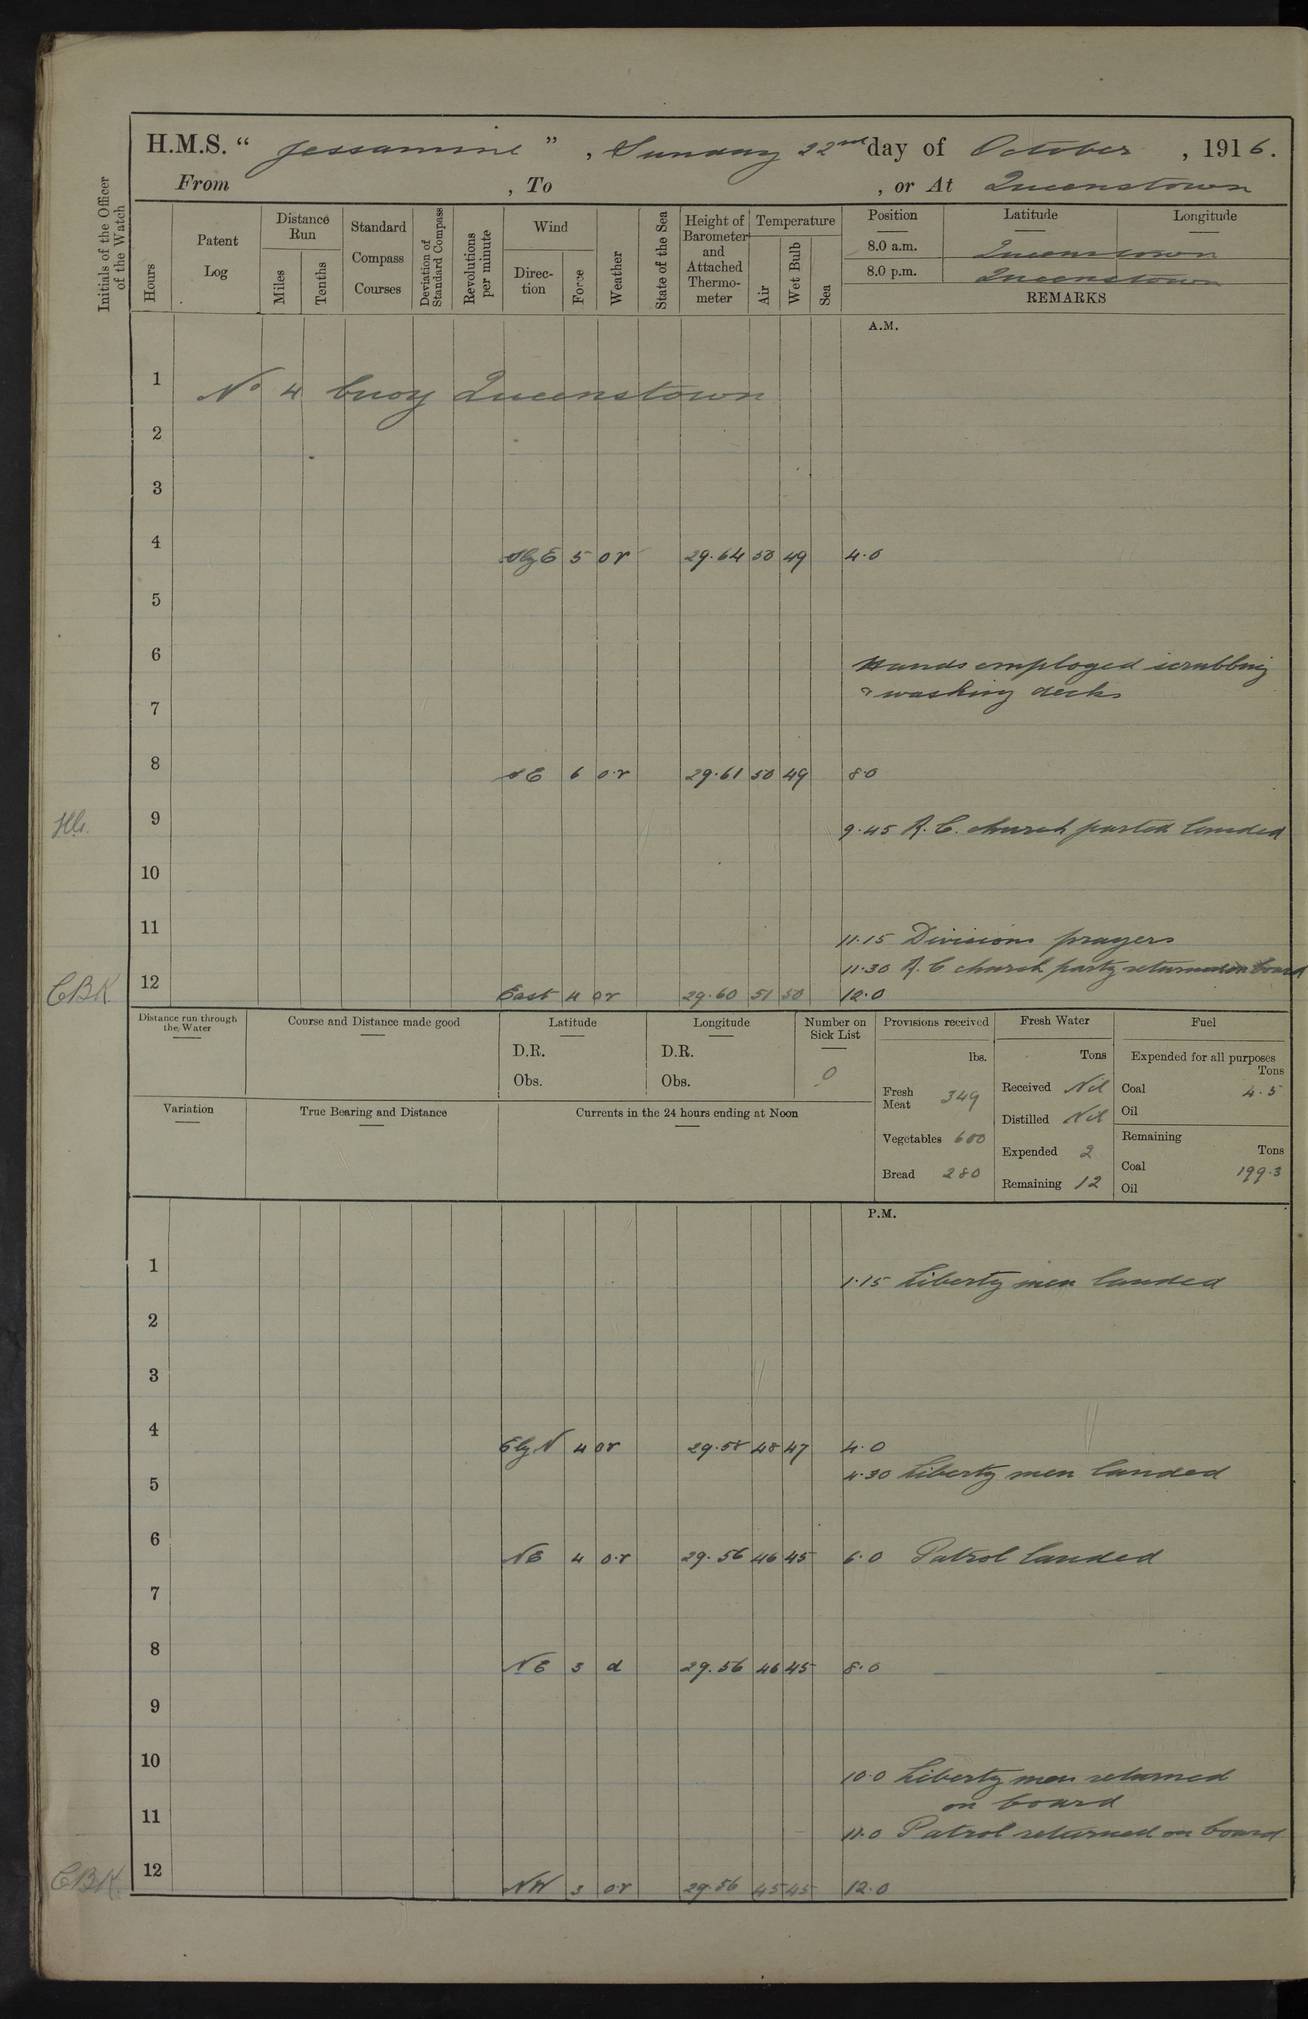 H.M.S. " Jessamine ", Sunday 22nd day of October, 1916.
From , To , or At Queenstown
Initials of the Officer of the Watch
Hours
Patent Log
Distance Run
Miles
Tenths
Standard Compass Courses
Deviation of Standard Compass
Revolutions per minute
Wind
Direction
Force
Weather
State of the Sea
Height of Barometer and Attached Thermometer
Temperature
Air
Wet Bulb
Sea
Position Latitude Longitude
8.0 a.m. Queenstown
8.0 p.m. Queenstown
REMARKS
A.M.
1 No 4 buoy Queenstown
2
3
4 SbyE 5 or 29.64 50 49 4.0
5
6 Hands employed scrubbing
& washing decks
7
8 SE 6 o.r 29.61 50 49 8.0
9 9.45 R.C. church parted landed
10
11 11.15 Divisions prayers
11.30 R.C church party returned on board
CBK 12 East 4 or 29.60 51 50 12.0
Distance run through the Water
Course and Distance made good
Latitude
D.R.
Obs.
Longitude
D.R.
Obs.
Number on Sick List
0
Variation
True Bearing and Distance
Currents in the 24 hours ending at Noon
Provisions received
lbs.
Fresh Meat 349
Vegetables 600
Bread 280
Fresh Water
Tons
Received Nil
Distilled Nil
Expended 2
Remaining 12
Fuel
Expended for all purposes
Tons
Coal 4.5
Oil
Remaining
Tons
Coal 199.3
Oil
P.M.
1 1.15 Liberty men landed
2
3
4 EbyN 4 or 29.58 48 47 4.0
4.30 Liberty men landed
5
6 NE 4 o.r 29.56 46 45 6.0 Patrol landed
7
8 NE 3 d 29.56 46 45 8.0
9
10 10.0 Liberty men returned
on board
11 11.0 Patrol returned on board
CBK. 12 NW 3 or 29.56 45 45 12.0